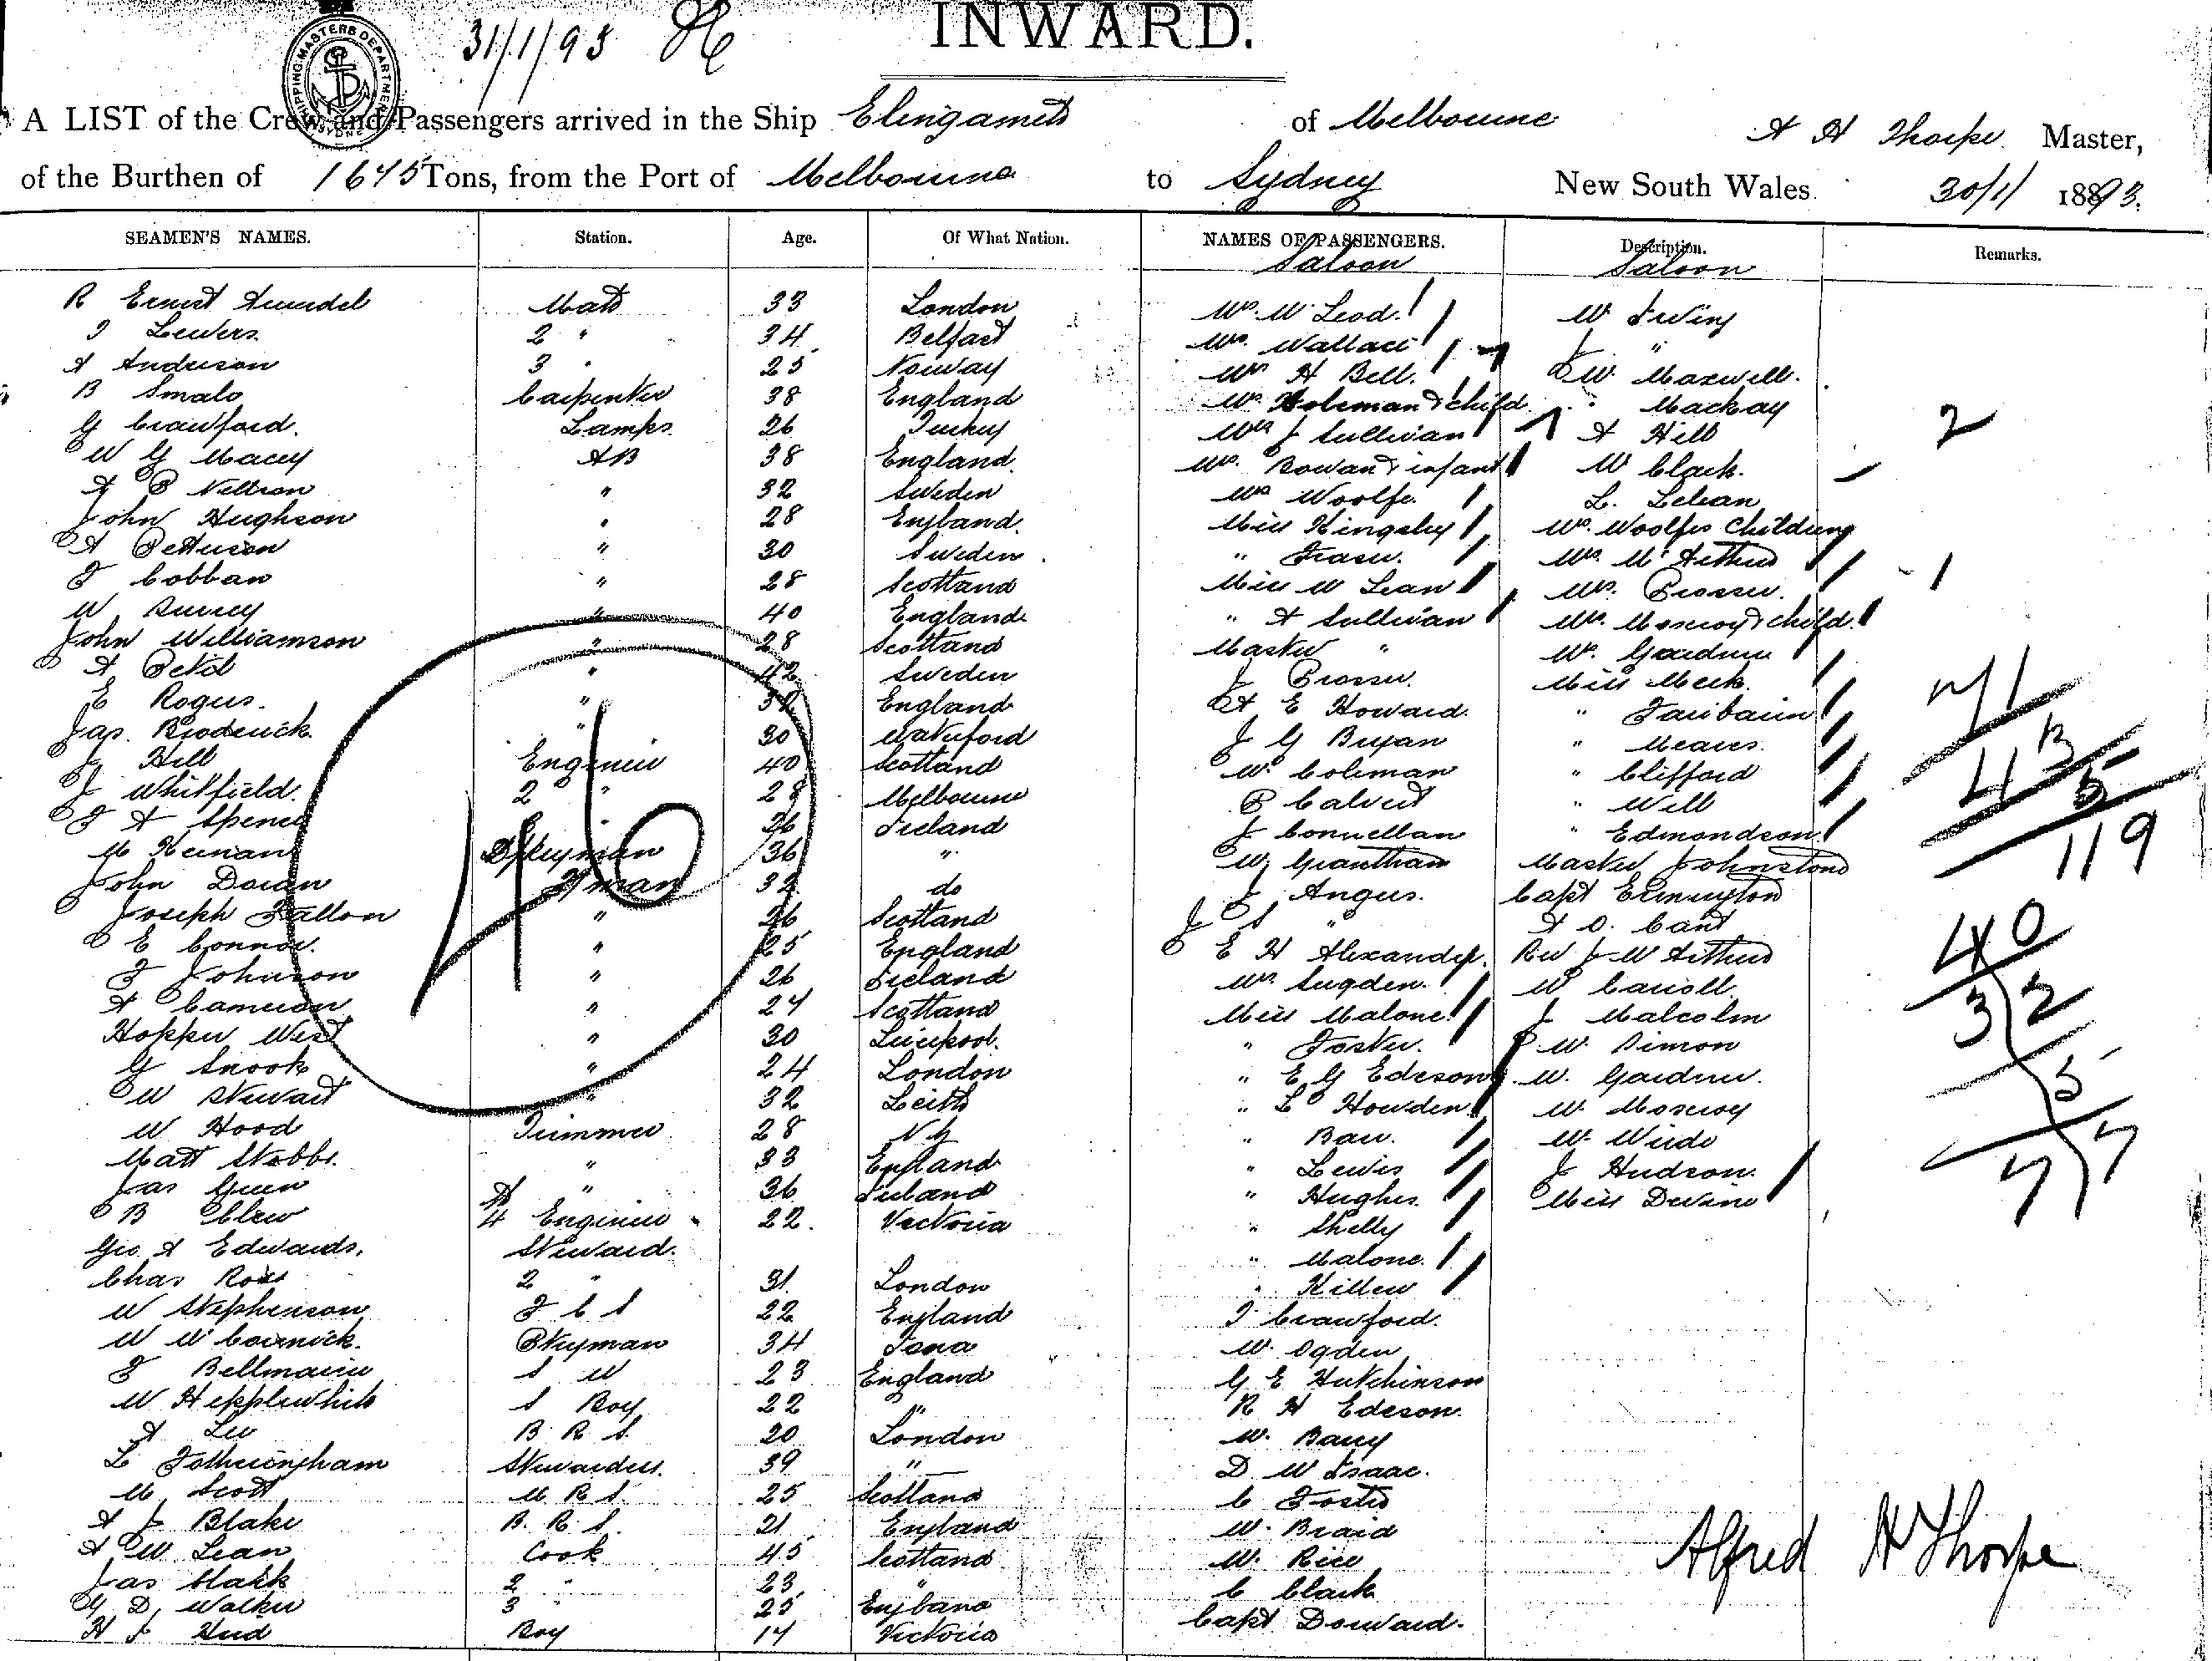 31/1/93
INWARD.
SHIPPING MASTERS DEPARTMENT SYDNEY
A LIST of the Crew and Passengers arrived in the Ship Elingamite of Melbourne A H Thorpe Master,
of the Burthen of 1675 Tons, from the Port of Melbourne to Sydney New South Wales. 30/1/ 1893.
SEAMEN'S NAMES. Station. Age. Of What Nation. NAMES OF PASSENGERS. Description. Remarks.
Saloon Saloon
R Ernest Arundel Mate 33 London Mrs. McLeod W Irving
Lewers 2 " 34 Belfast Mrs. Wallace "
A Anderson 3 " 25 Norway Mrs H Bell. W. Maxwell.
B Smale Carpenter 38 England Mrs Holeman & child " Mackay
G Crawford. Lamps 26 Turkey Mrs J Sullivan A Hill 2
W G Macey AB 38 England Mrs. Rowan & infant W Clark.
A P Neilson " 32 Sweden Mrs Woolfe L. Lelean
John Hughson " 28 England. Miss Kingsley Mrs. Woolfes Children
A Petterson " 30 Sweden " Fraser. Mrs. McArthur
F Cobban " 28 Scotland Miss McLean Mrs. Prosser. 1
W Surrey " 40 England " A Sullivan Mrs. Moncroy & child
John Williamson " 28 Scotland Master " Mrs. Gardner
A Petrd " 42 Sweden J Prosser. Miss Meek.
E Rogers. " 32 England A E Howard. " Fairbairn 71
Jas. Broderick. " 30 Waterford J G Bryan " Meares. 43
J Hill Engineer 40 Scotland W. Coleman " Clifford 5
J Whitfield. 2 " 28 Melbourne P Calvert " Will 119
F A Spence 3 " 26 Ireland J Connellan " Edmondson
M Keinan Dkeyman 36 " W Grantham Master Johnstone
John Doran Fman 32 do J Angus. Capt Ermington
Joseph Fallon " 26 Scotland J S " A O. Cant 40
E Connor. " 25 England E H Alexander. Rev J McArthur
F Johnson " 26 Ireland Mrs. Sugden. W Caroll. 32
A Cameron " 24 Scotland Miss Malone. J Malcolm
Hopper West " 30 Liverpool. " Foster. W. Simon
G Snook " 24 London " E G Edeson W. Gardner. 5
W Stewart " 32 Leith " L Howden W. Moncroy
W Hood Trimmer 28 N Z " Baw. W. Wirdo 77
Matt Stobbs. " 33 England " Lewis J Hudson.
Jas Green " 36 Ireland " Hughes. Miss Devine
B Clew 4 Engineer 22. Victoria " Shelly
Geo A Edwards. Steward. " Malone.
Chas Ross 2 " 31 London " Killen
W Stephenson F C S 22 England J Crawford.
W McCormick. Pkeyman 34 Iona W. Ogden
F Bellmaine S W 23 England G E Hutchinson
W Hepplewhite S Boy 22 " R H Edeson.
A Lee B. R S. 20 London W. Barry
L Fotheringham Stewardess. 39 " D W Isaac.
M Scott M R S. 25 Scotland C Foster
A J Blake B. R. S. 21 England W. Braid
A McLean Cook 45 Scotland W. Rice
Jas Clark 2 " 23 " C Clark
G D Walker 3 " 25 England Capt Dorward.
H J Hud Boy 17 Victoria
16
Alfred H Thorpe